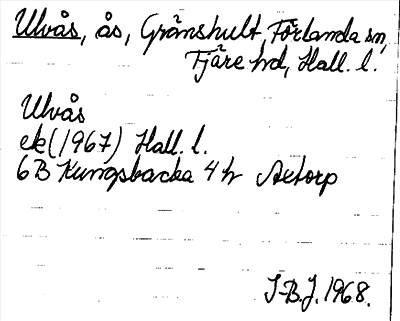 Ulvås, ås, Gränshult, Förlanda sn,
Fjäre hd, Hall. l.
Ulvås
ek (1967) Hall. l.
6B Kungsbacka 4 h Aetorp
J-B.J. 1968.